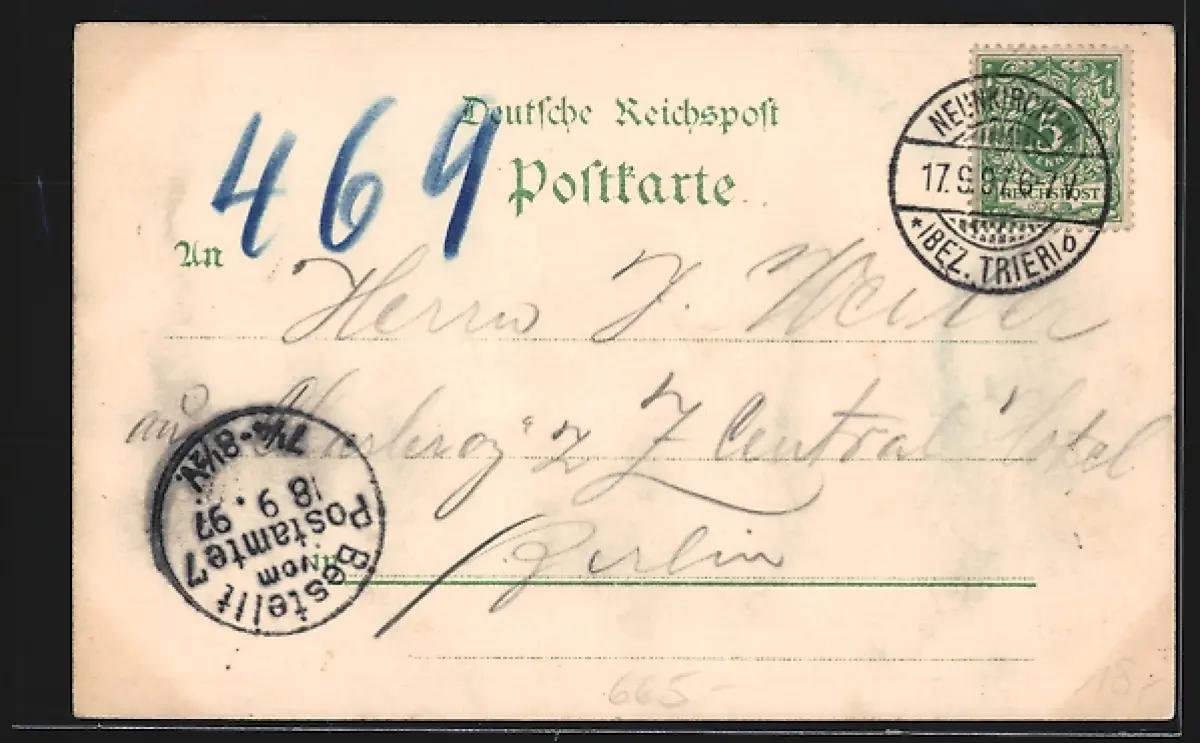 469
Deutsche Reichspost
Postkarte
An
NEUNKIRCHEN
17.9.97.6-7V.
* (BEZ. TRIER) b
5
REICHSPOST
Herrn J.
aus z Z Central Hotel
in Berlin
Bestellt
vom
Postamte 7
18 9. 97
7¼-8½N.
665-
18,-